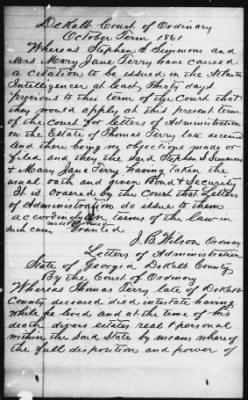 DeKalb Court of Ordinary
October Term 1861
Whereas Stephen A Simmons and
Mrs Mary Jane Terry have caused
a citation to be issued in the Atlanta
Intelligencer at least Thirty days
previous to this term of the Court that
they would apply at this present term
of the court for letters of Administration
on the Estate of Thomas Terry late deceased
and there being no objections made or
filed and they the said Stephen A Simmons
& Mary Jane Terry having taken the
usual oath and given Bond & Security
It is Ordered by the Court that Letters
of Administration do issue to them
accordingly in terms of the law in
such cases made & provided
Granted
J. B. Wilson Ordinary
Letters of Administration
State of Georgia DeKalb County
By the Court of Ordinary
Whereas Thomas Terry late of DeKalb
County deceased died intestate having
while he lived and at the time of his
death divers estates real & personal
within the Said State by means whereof
the full disposition and power of